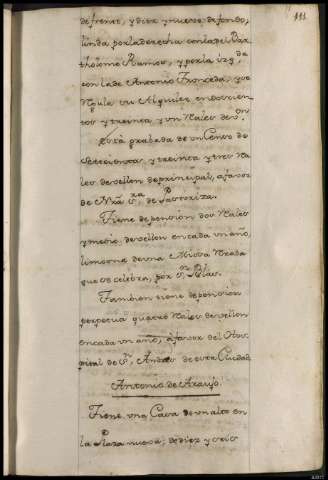 111.
de frente, y diez y nueve de fondo,
linda por la derecha con la del Bar
tholome Ramos, y por la izqda
con la de Antonio Fronceda, y se
Regula su Alquiler en doscien
tos y treinta y un Reales de von
Está grabada de un Censo de
Setecientos, y treinta y tres Rea
les de vellon de principal, a favor
de Nra Sra de Pastoriza.
Tiene de pension dos Reales
y medio, de vellon en cada un año,
limosna de una Missa Rezada
que se celebra, por Sn Blas.
Tambien tiene de pension
perpetua quatro Reales de vellon
en cada un año, a favor del Hos
pital de Sn Andres de esta Ciudad
Antonio de Araujo.
Tiene una Casa de un alto en
la Plaza nueva; de diez y seis